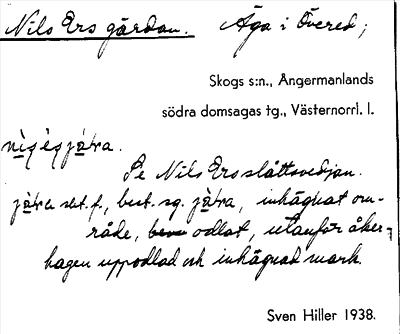 Nils Ers gårdan. Äga i Övered;
Skogs s:n., Ångermanlands
södra domsagas tg., Västernorrl. l.
Se Nils Ersslåttsvedjan.
best. sg. inhägnat om-
råde, odlat, utanför åker-
hagen uppodlad och inhägnad mark.
Sven Hiller 1938.